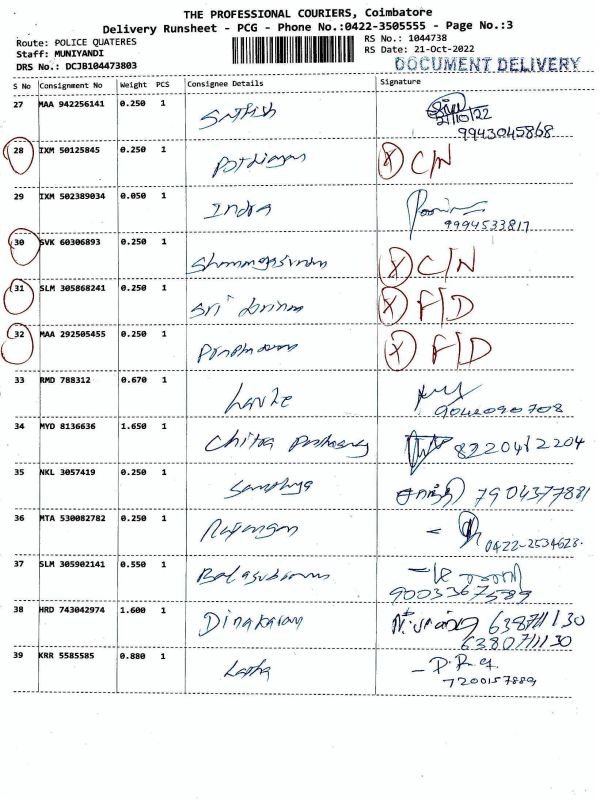 THE PROFESSIONAL COURIERS, Coimbatore
Delivery Runsheet - PCG - Phone No.:0422-3505555 - Page No.:3
Route: POLICE QUATERES
RS No.: 1044738
Staff: MUNIYANDI
RS Date: 21-Oct-2022
DRS No.: DCJB104473803
DOCUMENT DELIVERY
S No Consignment No Weight PCS Consignee Details Signature
27 MAA 942256141 0.250 1 Sathish
21/10/22
9943045868
28 IXM 50125845 0.250 1 X C/N
29 IXM 502389034 0.050 1 Indra
9994533817
30 SVK 60306893 0.250 1 X C/N
31 SLM 305868241 0.250 1 Sri X F/D
32 MAA 292505455 0.250 1 X F/D
33 RMD 788312 0.670 1
34 MYD 8136636 1.650 1 Chitra 8220412204
35 NKL 3057419 0.250 1 Sandhya 7904377881
36 MTA 530082782 0.250 1
0422-2534628.
37 SLM 305902141 0.550 1
9003367589
38 HRD 743042974 1.600 1 Dinakaran 638711130
6380711130
39 KRR 5585585 0.880 1 Latha
7200157889